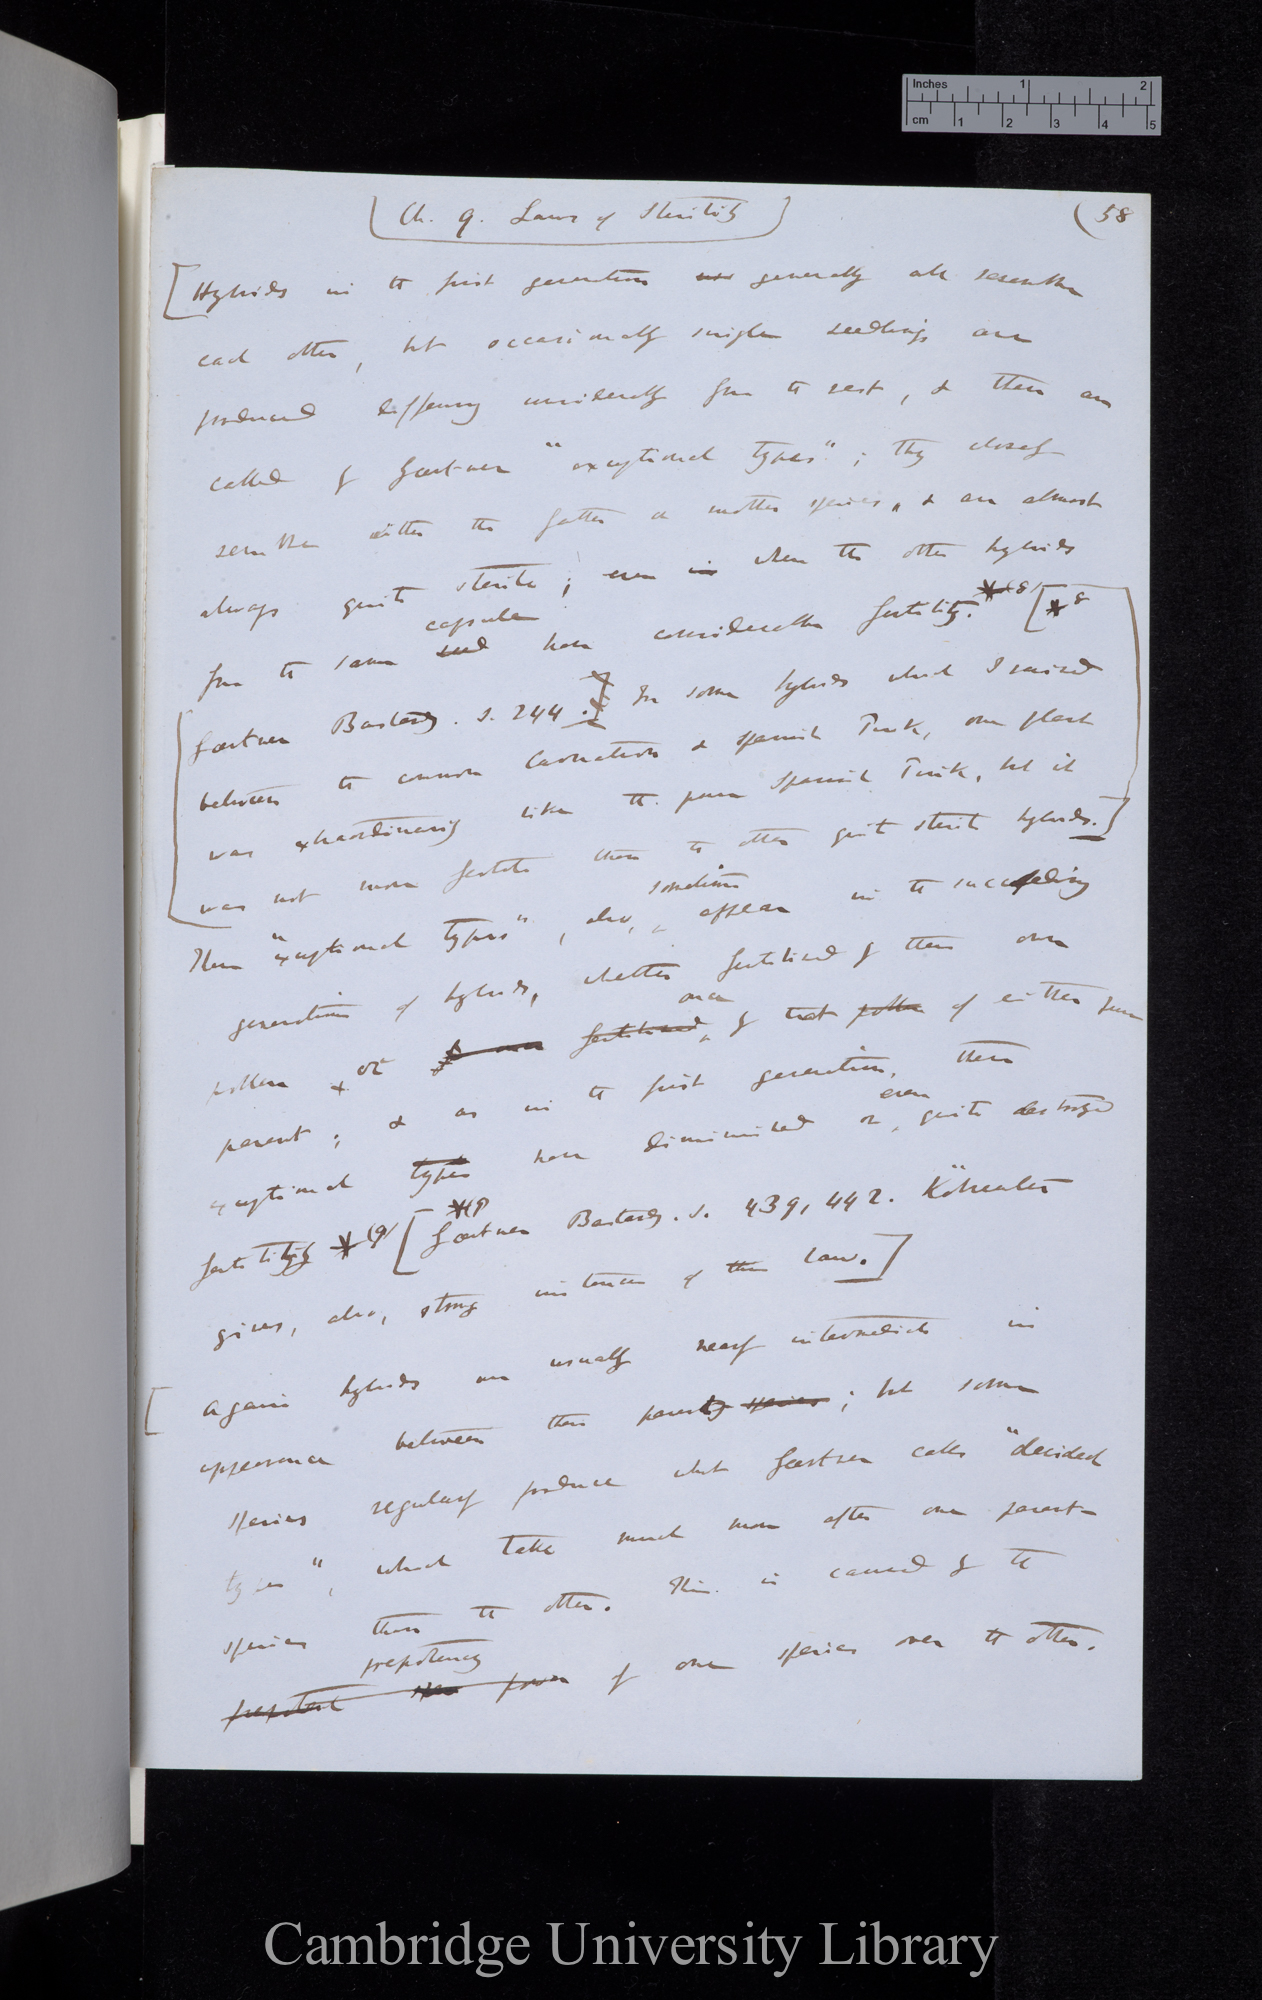 Inches 1 2
cm 1 2 3 4 5
Ch. 9. Laws of Sterility
(58
[Hybrids in the first generation generally all resemble
each other, but occasionally single seedlings are
produced differing considerably from the rest, & these are
called by Gærtner "exceptional types"; they closely
resemble either the father or mother species, & are almost
always quite sterile; even in when the other hybrids
capsule
from the same seed have considerable fertility.*(8/ [*8
Gærtner Bastarde. s. 244.] In some hybrids which I raised
between the common Carnation & Spanish Pink, one plant
was extraordinarily like the pure Spanish Pink, but it
was not more fertile than the other quite sterile hybrids.]
sometimes
These "exceptional types", also, appear in the succeeding
generations of hybrids, whether fertilised by their own
once
pollen, or fertilised, by that pollen of either pure
parent; & as in the first generation, these
even
exceptional types have diminished or, quite destroyed
fertility *(9/ [*(9 Gærtner Bastarde. s. 439, 442. Kölreuter
gives, also, strong instances of this law.]
[Again hybrids are usually nearly intermediate in
appearance between their parents species; but some
species regularly produce what Gærtner calls "decided
types", which take much more after one parent-
species than the other. This is caused by the
prepotency
prepotent power of one species over the other.
Cambridge University Library